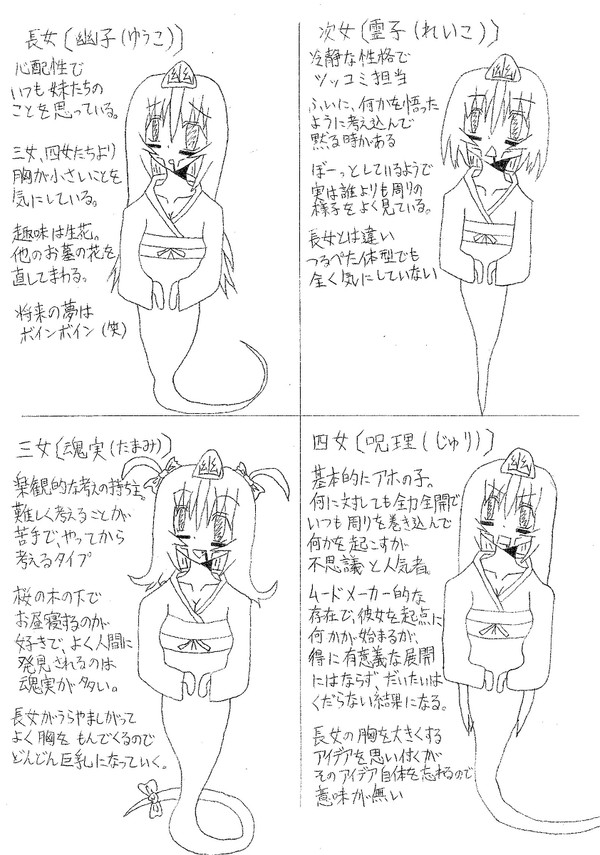 長女〔幽子(ゆうこ)〕
心配性で
いつも妹たちの
ことを思っている。
三女、四女たちより
胸が小さいことを
気にしている。
趣味は生花。
他のお墓の花を
直してまわる。
将来の夢は
ボインボイン(笑)
幽
次女〔霊子(れいこ)〕
冷静な性格で
ツッコミ担当
ふいに、何かを悟った
ように考え込んで
黙る時がある
ぼーっとしているようで
実は誰よりも周りの
様子をよく見ている。
長女とは違い
つるぺた体型でも
全く気にしていない
幽
三女〔魂実(たまみ)〕
楽観的な考えの持ち主。
難しく考えることが
苦手で、やってから
考えるタイプ
桜の木の下で
お昼寝するのが
好きで、よく人間に
発見されるのは
魂実が多い。
長女がうらやましがって
よく胸をもんでくるので
どんどん巨乳になっていく。
幽
四女〔呪理(じゅり)〕
基本的にアホの子。
何に対しても全力全開で
いつも周りを巻き込んで
何かを起こすが
不思議と人気者。
ムードメーカー的な
存在で、彼女を起点に
何かが始まるが、
得に有意義な展開
にはならず、だいたいは
くだらない結果になる。
長女の胸を大きくする
アイデアを思い付くが
そのアイデア自体を忘れるので
意味が無い
幽